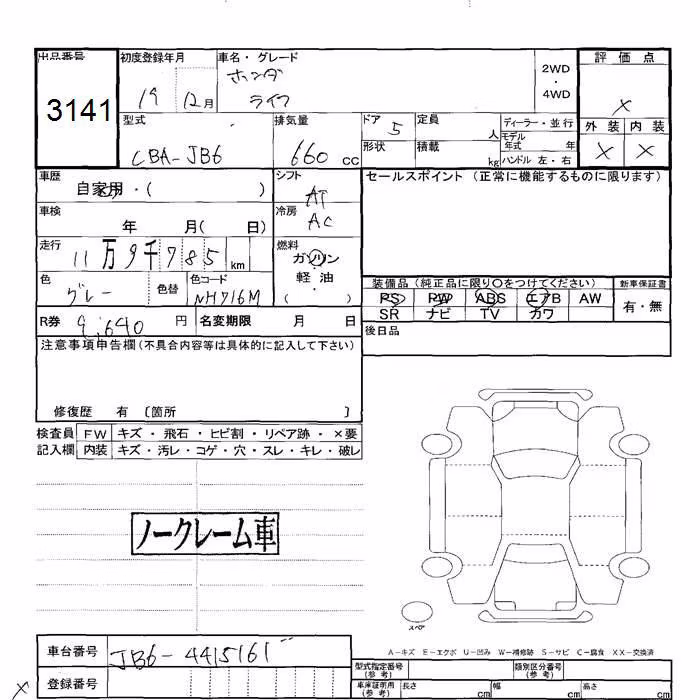 出品番号 初度登録年月 車名・グレード 2WD・4WD 評価点
3141 19 12月 ホンダ ライフ ×
型式 排気量 ドア 5 定員 人 ディーラー・並行 外装 内装
CBA-JB6 660cc 形状 積載 kg モデル年式 年 ハンドル 左・右 × ×
車歴 シフト セールスポイント (正常に機能するものに限ります)
自家用・( ) AT
車検 冷房
年 月( 日) AC
走行 燃料
11万9千785km ガソリン
色 色替 色コード 軽油
グレー NH716M ( )
装備品(純正品に限り〇をつけてください) 新車保証書
PS PW ABS エアB AW 有・無
SR ナビ TV カワ
R券 9,640円 名変期限 月 日
後日品
注意事項申告欄(不具合内容等は具体的に記入して下さい)
修復歴 有 〔箇所 〕
検査員 FW キズ・飛石・ヒビ割・リペア跡・×要
記入欄 内装 キズ・汚レ・コゲ・穴・スレ・キレ・破レ
ノークレーム車
スペア
A-キズ E-エクボ U-凹み W-補修跡 S-サビ C-腐食 XX-交換済
車台番号 JB6-4415161
型式指定番号(参考) 類別区分番号(参考)
× 登録番号
車庫証明用(参考) 長さ cm 幅 cm 高さ cm